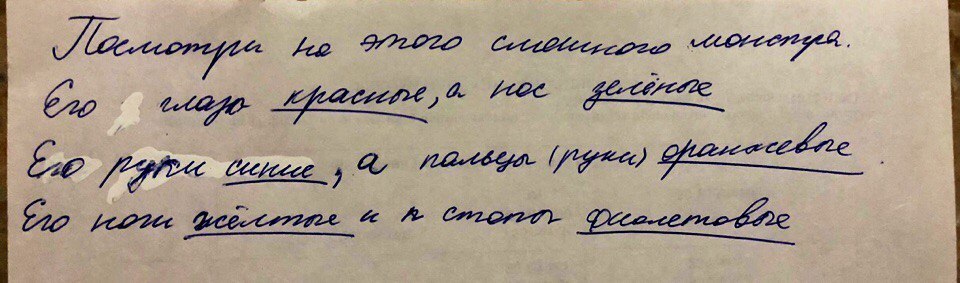 Посмотри на этого смешного монстра.
Его глаза красные, а нос зелёные
Его руки синие, а пальцы (руки) оранжевые
Его ноги жёлтые и стопы фиолетовые